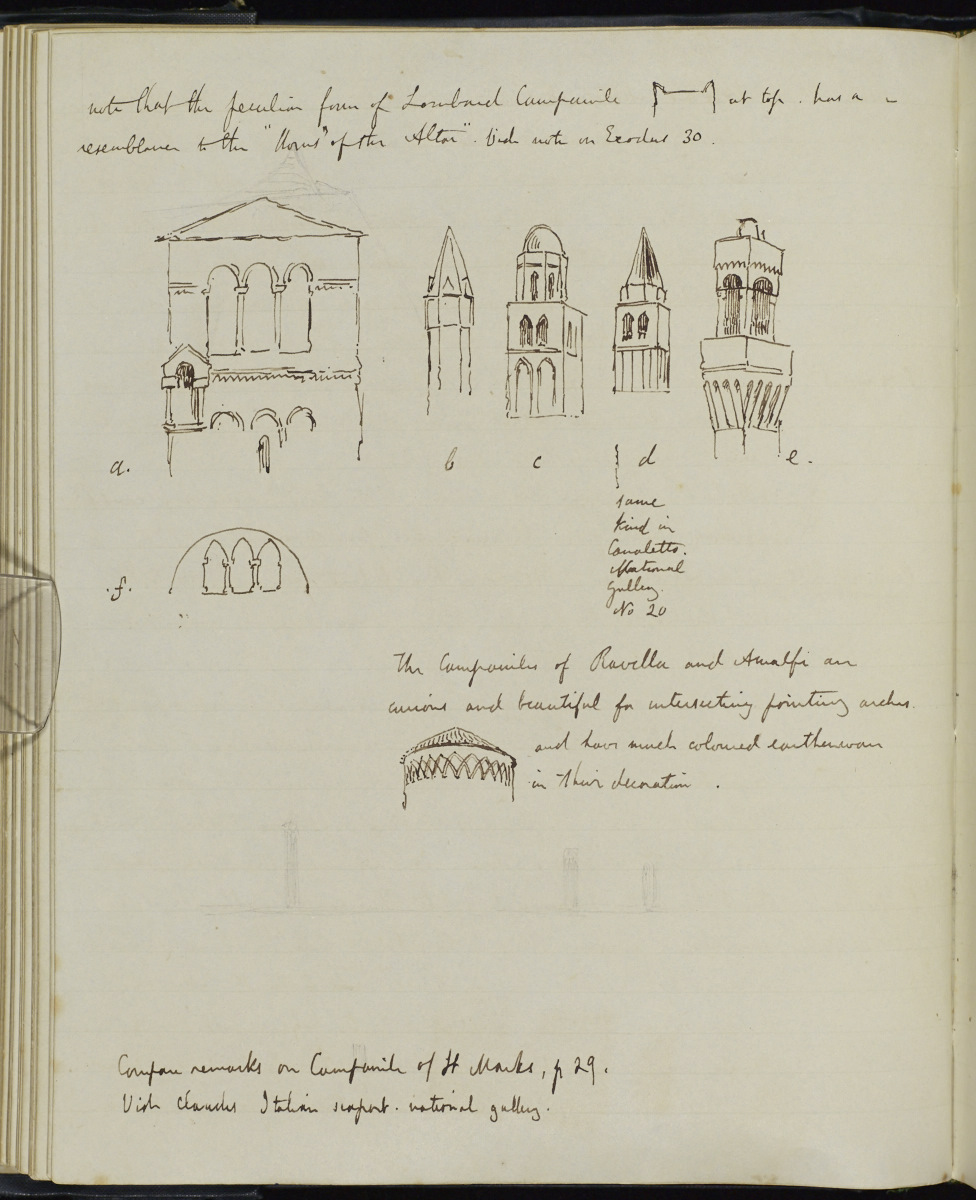 note that the peculiar form of Lombard Campanile at top. has a
resemblance to the "Horns" of the Altar". Vide note on Exodus 30.
a.
b
c
d
e.
same
kind in
Canaletto.
National
Gallery.
No 20
.f.
The Campaniles of Ravello and Amalfi are
curious and beautiful for intersecting pointing arches.
and have much coloured earthenware
in their decoration .
Compare remarks on Campanile of St Marks, p 29.
Vide Claudes Italian seaport. national gallery.